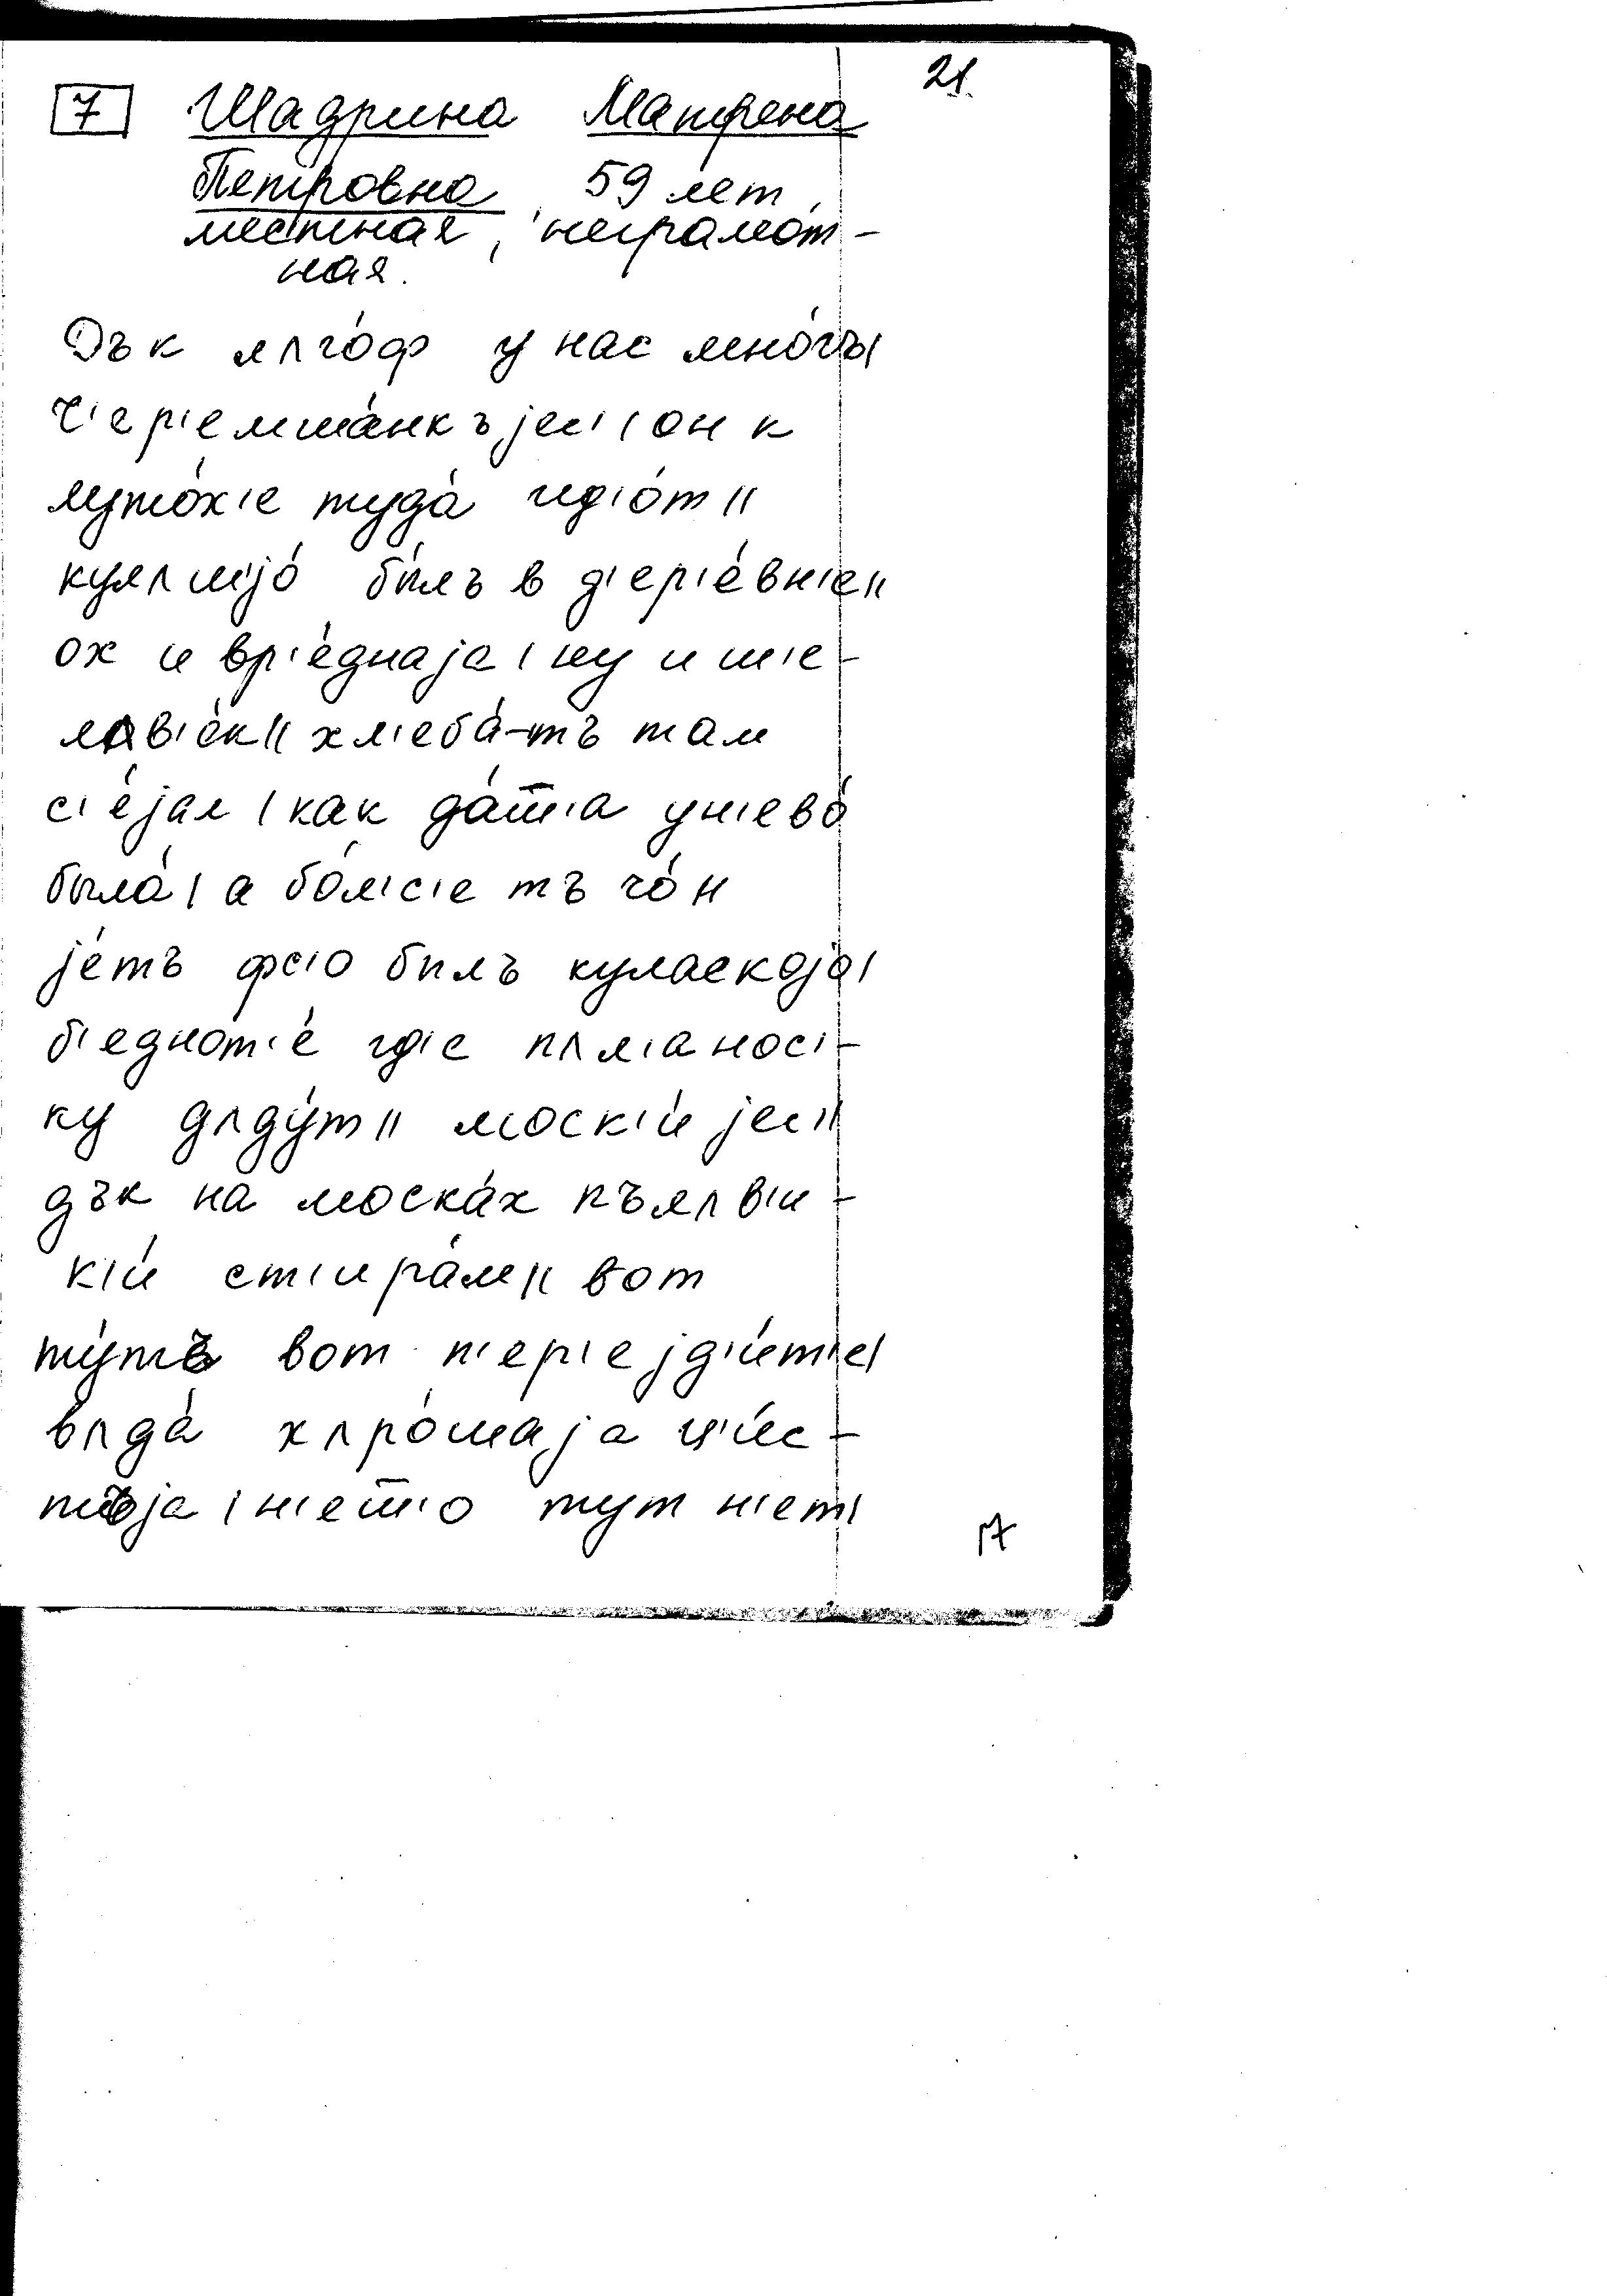 21.
7 Шадрина Матрена
Петровна, 59 лет,
местная, неграмот-
ная.
Дък лʌго́ф у нас мно́гъ/
ч'ер'емша́нкъ јес'/он к
луто́х'е туда́ ид'о́т//
кулʌш'јо́ бы́лъ в д'ер'е́вн'е//
ох и вр'е́днаја/ну и ш'е-
лʌв'е́к// хл'еба́-тъ там
с'е́јал/как да́т'а ун'ево́
была́/а бо́л'с'е тъ чо́н
је́тъ фс'о былъ куласкоја/
б'еднот'е́ гд'е пʌл'анос'-
ку дʌду́т// моск'и́ јес'//
дък на моска́х пъ лʌв'и-
к'и́ ст'ира́м// вот
ту́тъ вот п'ер'ејд'и́т'е/
вʌда́ хʌро́шаја ц'и́с-
тъја/н'ет'о тут н'ет/
17